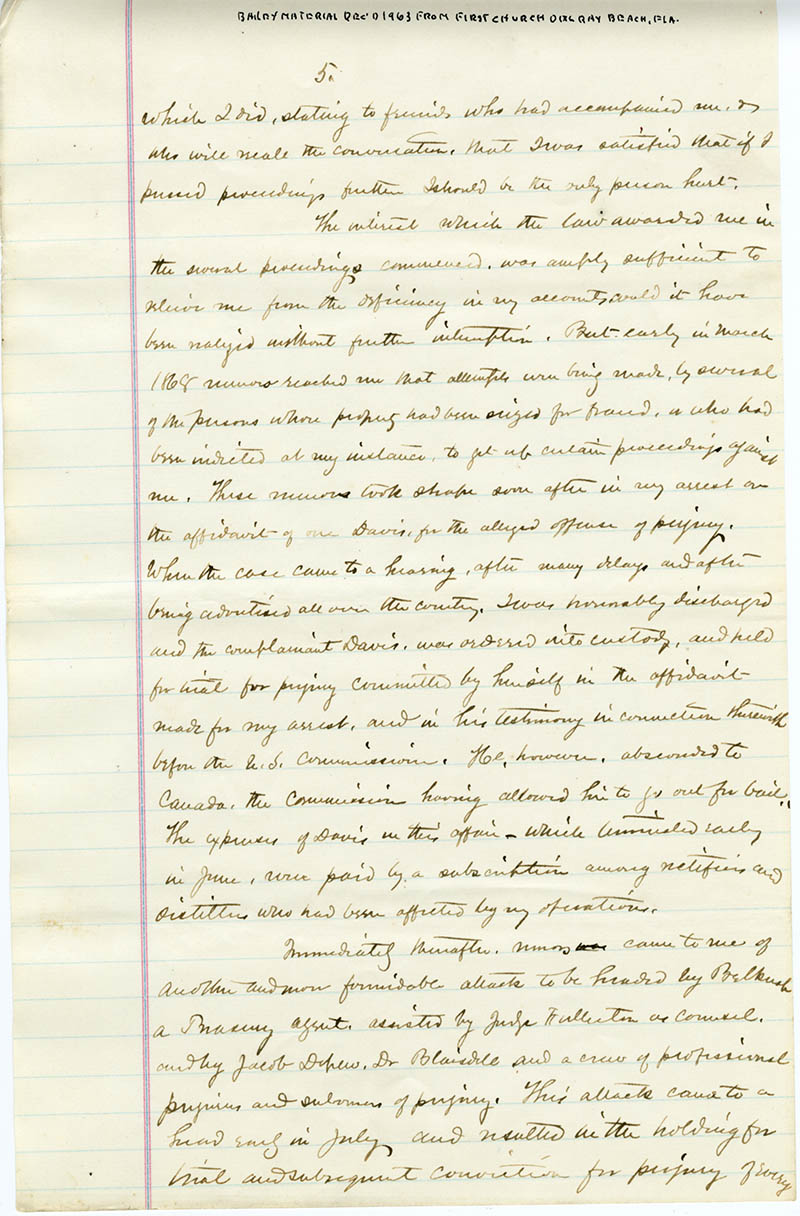 BAILEY MATERIAL REC'D 1963 FROM FIRST CHURCH DELRAY BEACH, FLA.
5.
which I did, stating to friends who had accompanied me, &
who will recall the conversation, that I was satisfied that if I
pressed proceedings further I should be the only person hurt.
The interest which the law awarded me in
the several proceedings commenced, was amply sufficient to
relieve me from the deficiency in my accounts, could it have
been realized without further interruption. But early in March
1868 rumors reached me that attempts were being made, by several
of the persons whose property had been seized for fraud, or who had
been indicted at my instance, to get up certain proceedings against
me. These rumors took shape soon after in my arrest on
the affidavit of one Davis, for the alleged offense of perjury.
When the case came to a hearing, after many delays and after
being advertised all over the country, I was honorably discharged
and the complainant Davis, was ordered into custody, and held
for trial for perjury committed by himself in the affidavit
made for my arrest, and in his testimony in connection therewith
before the U.S. Commissioner. He, however, absconded to
Canada, the Commissioner having allowed him to go out for bail.
The expenses of Davis in this affair - which terminated early
in June, were paid by a subscription among rectifiers and
distillers who had been affected by my operations.
Immediately thereafter, rumors came to me of
another and more formidable attack to be headed by
a Treasury agent, assisted by Judge Fullerton as counsel,
and by Jacob Depew, Dr Blaisdell and a crew of professional
perjurers and suborners of perjury. This attack came to a
head early in July and resulted in the holding for
trial and subsequent conviction for perjury of every